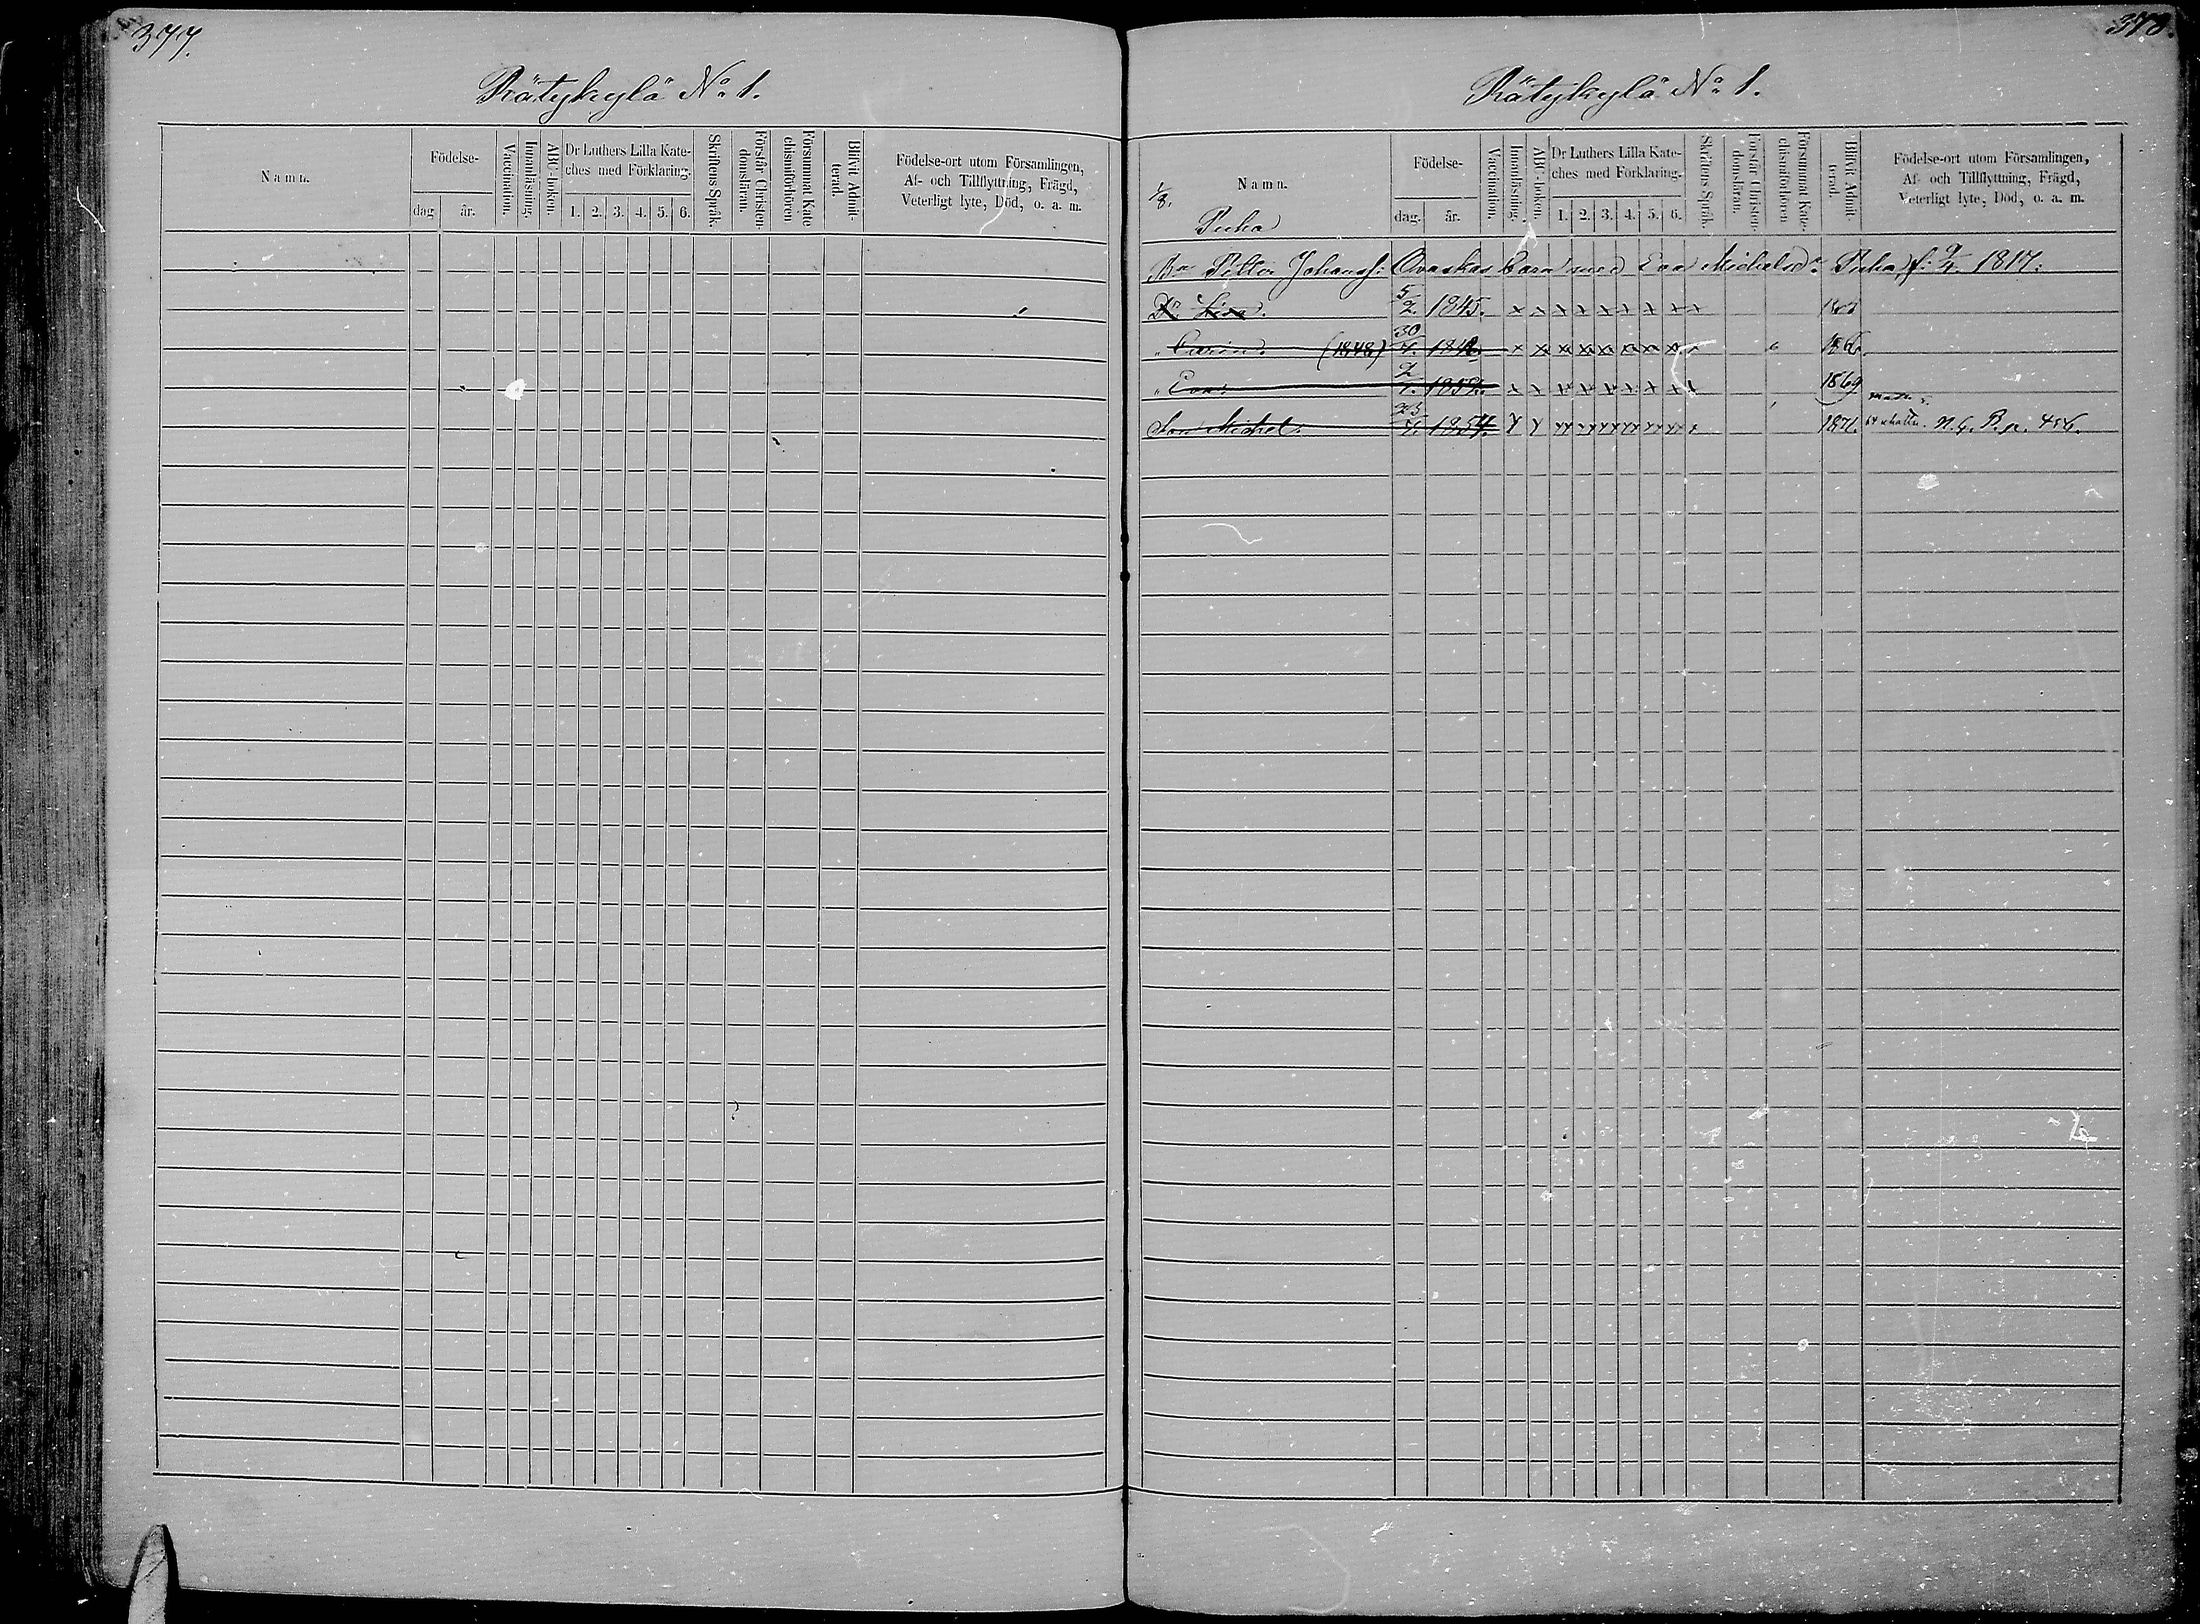 377.
Rätykylä No 1.
Namn.
Födelse-
dag
år.
Vaccination.
Innanläsning.
ABC-boken.
Dr Luthers Lilla Kate-
ches med Förklaring.
1. 2. 3. 4. 5. 6.
Skriftens Språk.
Förstår Christen-
domsläran.
Försummat Kate-
chismiförhören
Blifvit Admit-
terad.
Födelse-ort utom Församlingen,
Af- och Tillflyttning, Frägd,
Veterligt lyte, Död, o. a. m.
378.
Rätykylä No 1.
1/8.
Namn.
Puha
Födelse-
dag.
år.
Vaccination.
Innanläsning.
ABC-boken.
Dr Luthers Lilla Kate-
ches med Förklaring.
1. 2. 3. 4. 5. 6.
Skriftens Språk.
Förstår Christen-
domsläran.
Försummat Kate-
chismiförhören
Blifvit Admit-
terad.
Födelse-ort utom Församlingen,
Af- och Tillflyttning, Frägd,
Veterligt lyte, Död, o. a. m.
Petter Johanss: Ovaskas barn med Eva Michelsdr Puha, f: 1817:
Dr Lisa. 5/2. 1845. x x x x x x x x x
" Carin. (1848) 30/7. x x x x x x x x x
" Eva: 2/7. 1852. x x x x x x x x x 1869
Son Michel. 23/7. 1854. 1871. N.G.B. p. 456.